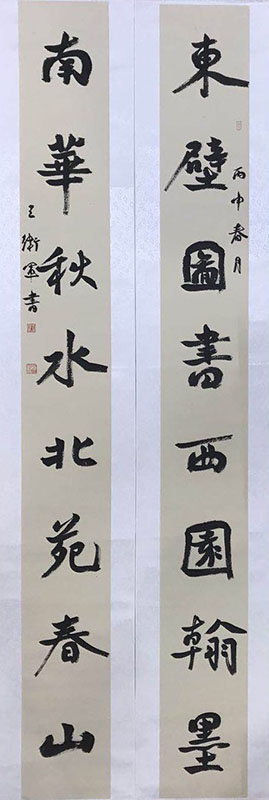 東壁圖書西園翰墨
丙申春月
南華秋水北苑春山
王衛軍書